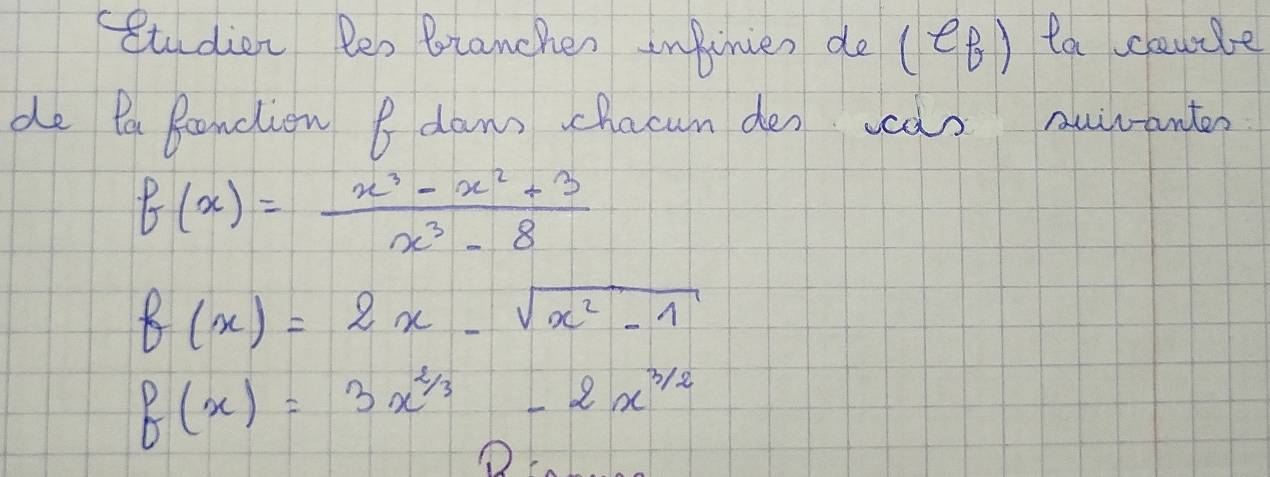 Etudier les branches infinies de (Cf) la courbe
de la fonction f dans chacun des cas suivantes
f(x) = (x³ - x² + 3) / (x³ - 8)
f(x) = 2x - √(x² - 1)
f(x) = 3x^(2/3) - 2x^(3/2)